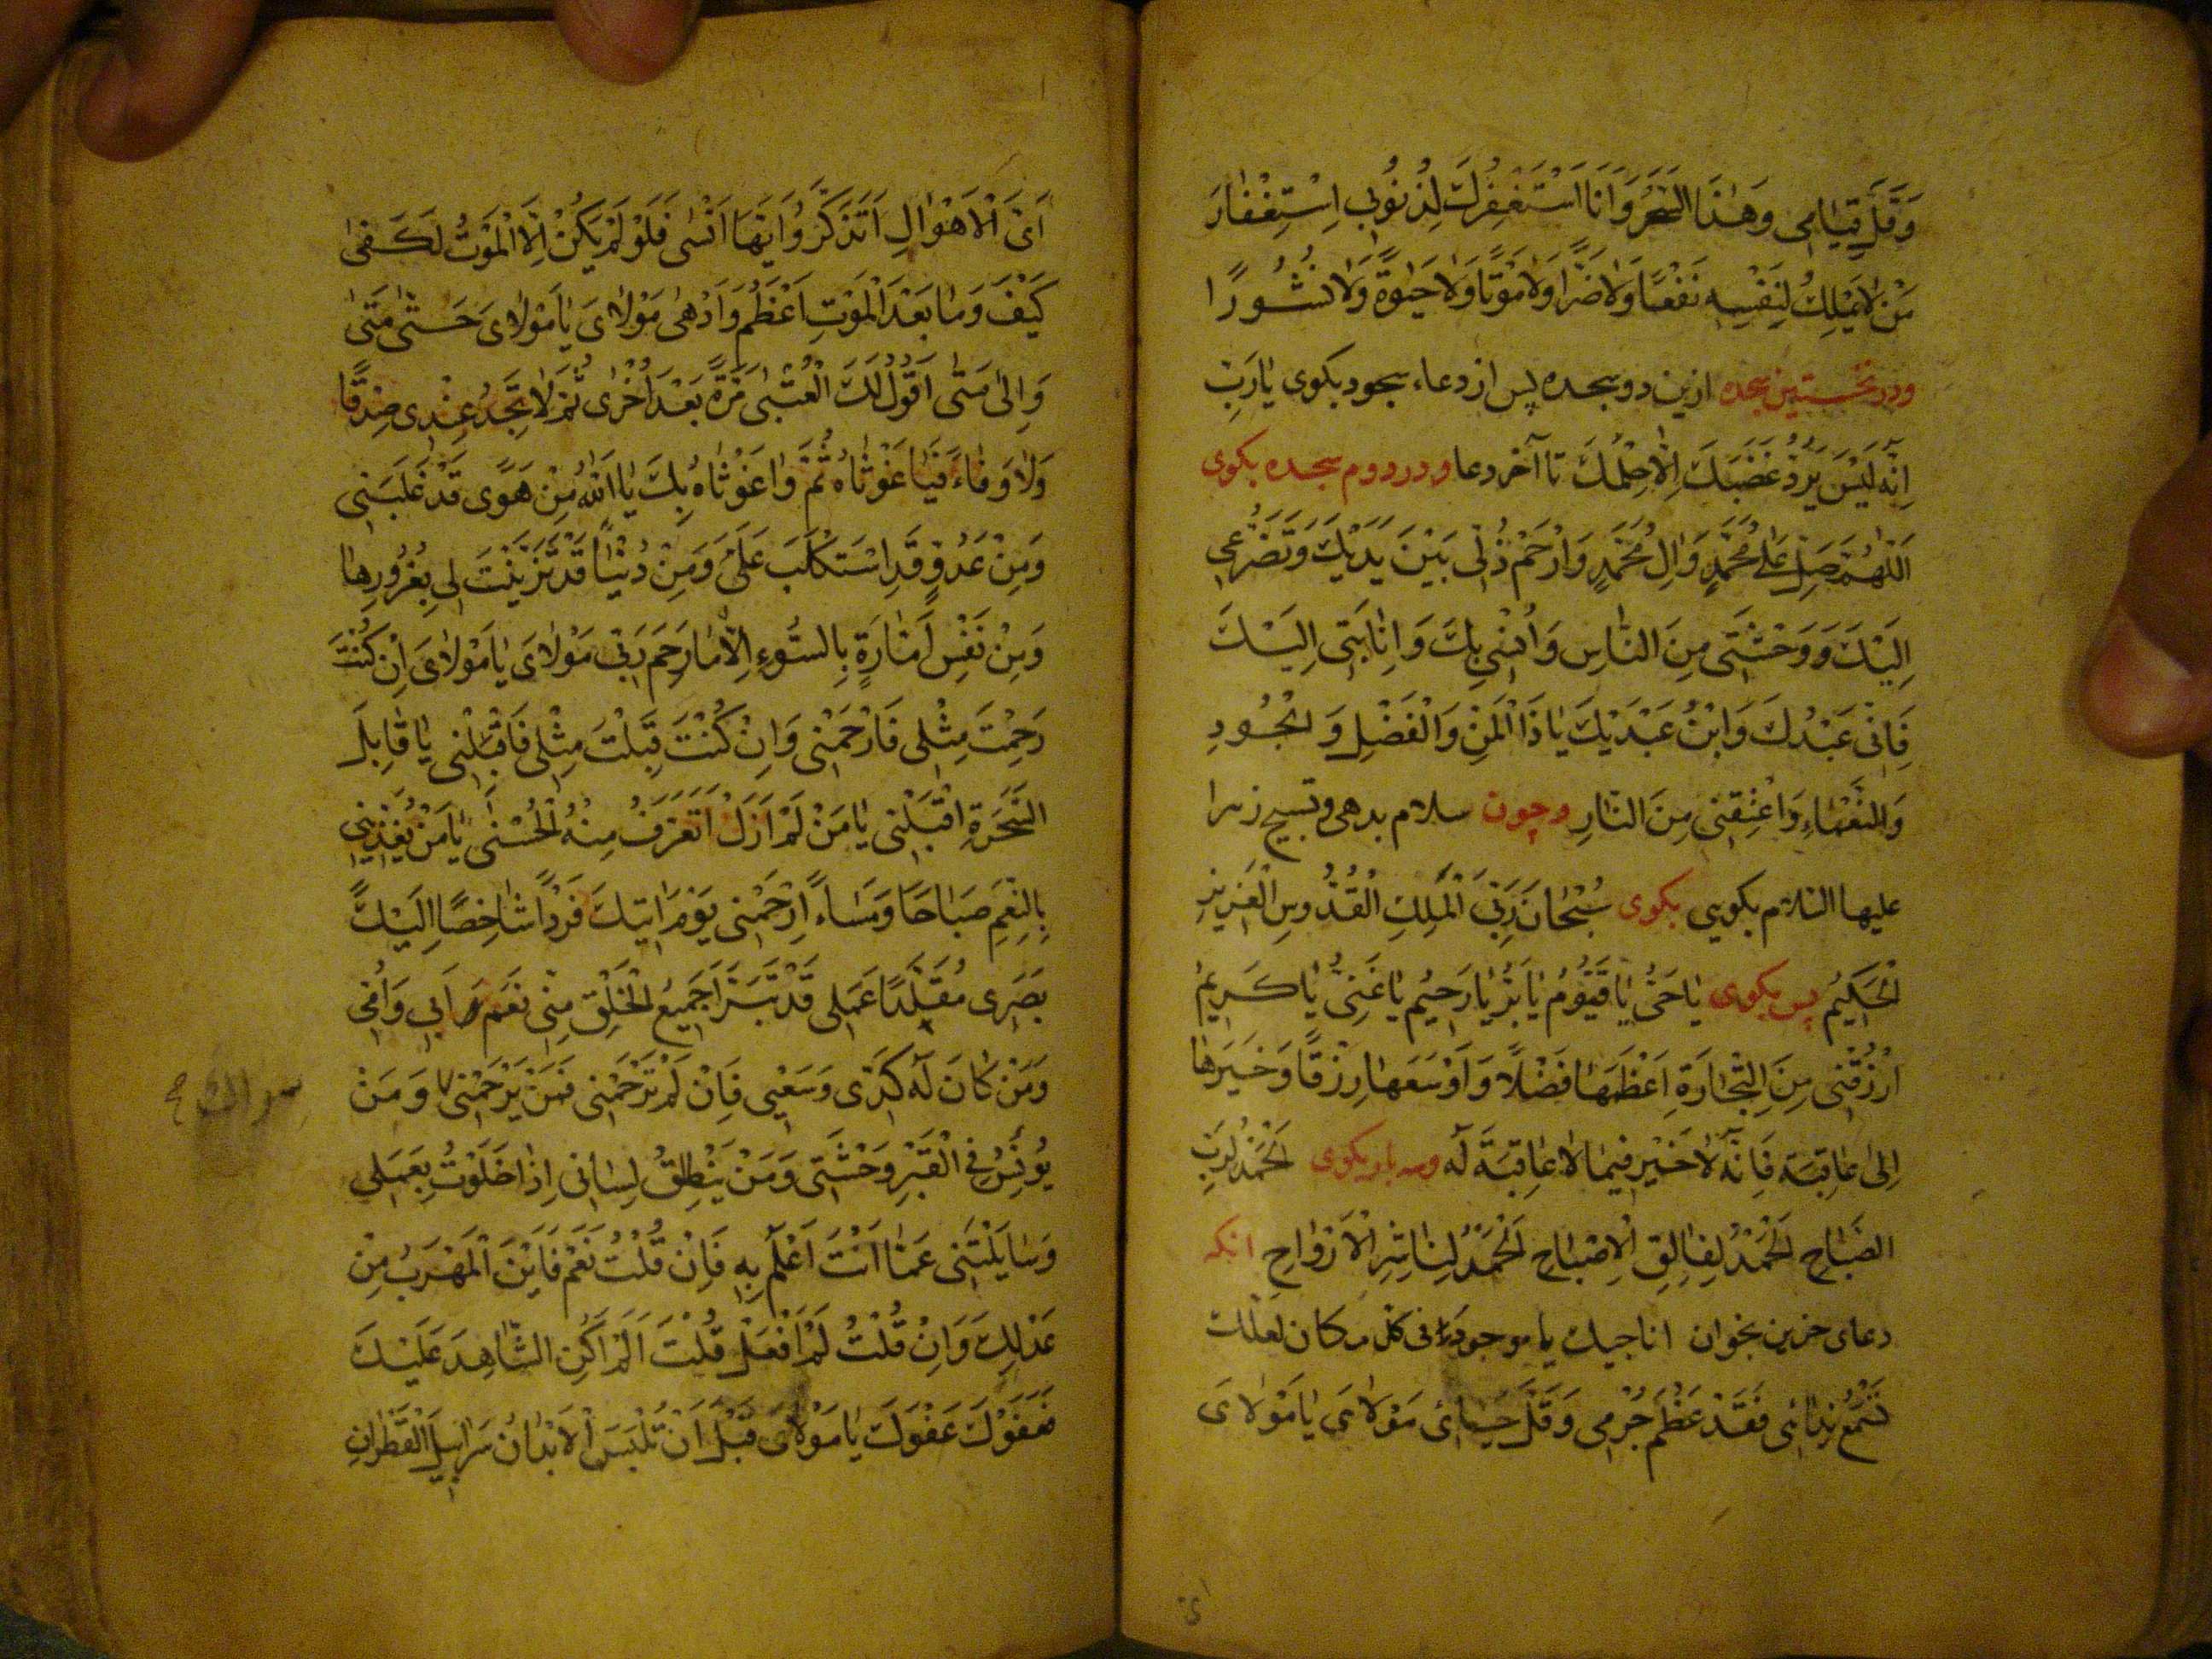 وَقَلَّ قِيَامِى وَهٰذَا السَّحَرُ وَاَنَا اَسْتَغْفِرُكَ لِذُنُوبِى اِسْتِغْفَارَ
مَنْ لَا يَمْلِكُ لِنَفْسِهِ نَفْعًا وَلَا ضَرًّا وَلَا مَوْتًا وَلَا حَيٰوةً وَلَا نُشُورًا
ودر نخستين سجده ازين دو سجده پس از دعاء سجود بكوى يَا رَبِّ
اِنَّهُ لَيْسَ يَرُدُّ غَضَبَكَ اِلَّا حِلْمُكَ تا آخر دعا ودر دوم سجده بكوى
اَللّٰهُمَّ صَلِّ عَلٰى مُحَمَّدٍ وَاٰلِ مُحَمَّدٍ وَارْحَمْ ذُلِّى بَيْنَ يَدَيْكَ وَتَضَرُّعِى
اِلَيْكَ وَ وَحْشَتِى مِنَ النَّاسِ وَاُنْسِى بِكَ وَاِنَابَتِى اِلَيْكَ
فَاِنِّى عَبْدُكَ وَابْنُ عَبْدَيْكَ يَا ذَا الْمَنِّ وَالْفَضْلِ وَالْجُودِ
وَالنَّعْمَاءِ وَاعْتِقْنِى مِنَ النَّارِ وچون سلام بدهى وتسبيح زهرا
عليها السلام بكويى بكوى سُبْحَانَ رَبِّىَ الْمَلِكِ الْقُدُّوسِ الْعَزِيزِ
الْحَكِيمُ پس بكوى يَا حَىُّ يَا قَيُّومُ يَا بَرُّ يَا رَحِيمُ يَا غَنِىُّ يَا كَرِيمُ
اُرْزُقْنِى مِنَ التِّجَارَةِ اَعْظَمَهَا فَضْلًا وَاَوْسَعَهَا رِزْقًا وَخَيْرَهَا
اِلٰى عَاقِبَة فَاِنَّهُ لَا خَيْرَ فِيمَا لَا عَاقِبَةَ لَهُ وسه بار بكوى اَلْحَمْدُ لِرَبِّ
الصَّبَاحِ اَلْحَمْدُ لِفَالِقِ الْاِصْبَاحِ اَلْحَمْدُ لِنَاشِرِ الْاَرْوَاحِ انكه
دعاى حزين بخوان اناجيك يا موجودًا فى كل مكان لعلك
تَسْمَعُ نِدَائِى فَقَدْ عَظُمَ جُرْمِى وَقَلَّ حَيَائِى مَوْلَاىَ يَا مَوْلَاىَ
اى
اَىَّ الْاَهْوَالِ اَتَذَكَّرُ وَاَيَّهَا اَنْسٰى فَلَوْ لَمْ يَكُنْ اِلَّا الْمَوْتُ لَكَفٰى
كَيْفَ وَمَا بَعْدَ الْمَوْتِ اَعْظَمُ وَاَدْهٰى مَوْلَاىَ يَا مَوْلَاىَ حَتّٰى مَتٰى
وَاِلٰى مَتٰى اَقُولُ لَكَ الْعُتْبٰى مَرَّةً بَعْدَ اُخْرٰى ثُمَّ لَا تَجِدُ عِنْدِى صِدْقًا
وَلَا وَفَاءً فَيَا غَوْثَاهُ ثُمَّ وَاغَوْثَاهُ بِكَ يَا اَللّٰهُ مِنْ هَوًى قَدْ غَلَبَنِى
وَمِنْ عَدُوٍّ قَدِ اسْتَكْلَبَ عَلَىَّ وَمِنْ دُنْيًا قَدْ تَزَيَّنَتْ لِى بِغُرُورِهَا
وَمِنْ نَفْسٍ اَمَّارَةٍ بِالسُّوءِ اِلَّا مَا رَحِمَ رَبِّى مَوْلَاىَ يَا مَوْلَاىَ اِنْ كُنْتَ
رَحِمْتَ مِثْلِى فَارْحَمْنِى وَاِنْ كُنْتَ قَبِلْتَ مِثْلِى فَاقْبَلْنِى يَا قَابِلَ
السَّحَرَةِ اِقْبَلْنِى يَا مَنْ لَمْ اَزَلْ اَتَعَرَّفُ مِنْهُ الْحُسْنٰى يَا مَنْ يُغَذِّينِى
بِالنِّعَمِ صَبَاحًا وَمَسَاءً اِرْحَمْنِى يَوْمَ اٰتِيكَ فَرْدًا شَاخِصًا اِلَيْكَ
بَصَرِى مُقَلَّدًا عَمَلِى قَدْ تَبَرَّاَ جَمِيعُ الْخَلْقِ مِنِّى نَعَمْ وَ اَبِى وَاُمِّى
وَمَنْ كَانَ لَهُ كَدِّى وَسَعْيِى فَاِنْ لَمْ تَرْحَمْنِى فَمَنْ يَرْحَمُنِى وَمَنْ
يُونِسُ فِى الْقَبْرِ وَحْشَتِى وَمَنْ يُنْطِقُ لِسَانِى اِذَا خَلَوْتُ بِعَمَلِى
وَسَايَلْتَنِى عَمَّا اَنْتَ اَعْلَمُ بِهِ فَاِنْ قُلْتُ نَعَمْ فَاَيْنَ الْمَهْرَبُ مِنْ
عَدْلِكَ وَاِنْ قُلْتُ لَمْ اَفْعَلْ قُلْتَ اَلَمْ اَكُنِ الشَّاهِدَ عَلَيْكَ
فَعَفْوَكَ عَفْوَكَ يَا مَوْلَاىَ قَبْلَ اَنْ تُلْبَسَ الْاَبْدَانُ سَرَابِيلَ الْقَطْرَانِ